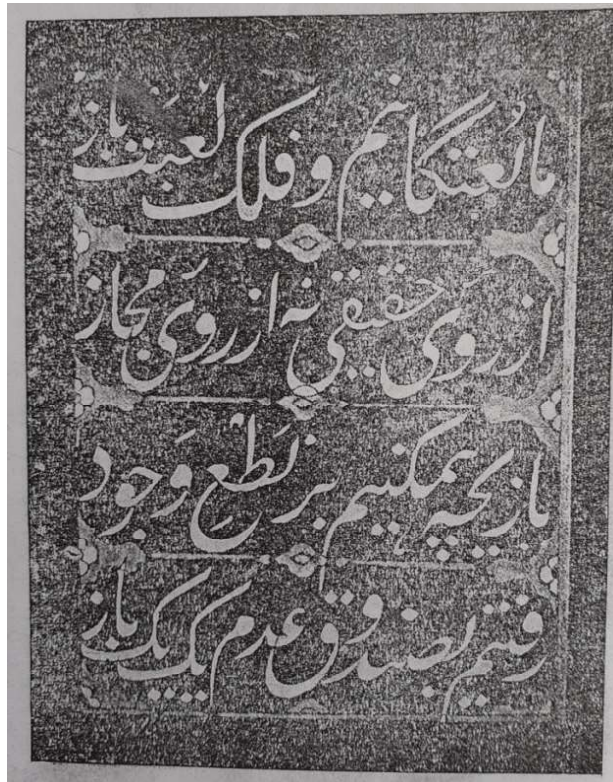 ما لُعبتگانیم و فلک لُعبَت باز
از رویِ حقیقی نه از رویِ مجاز
بازیچه همی‌کنیم بر نَطْعِ وَجود
رفتیم بصندوق عدم یک یک باز